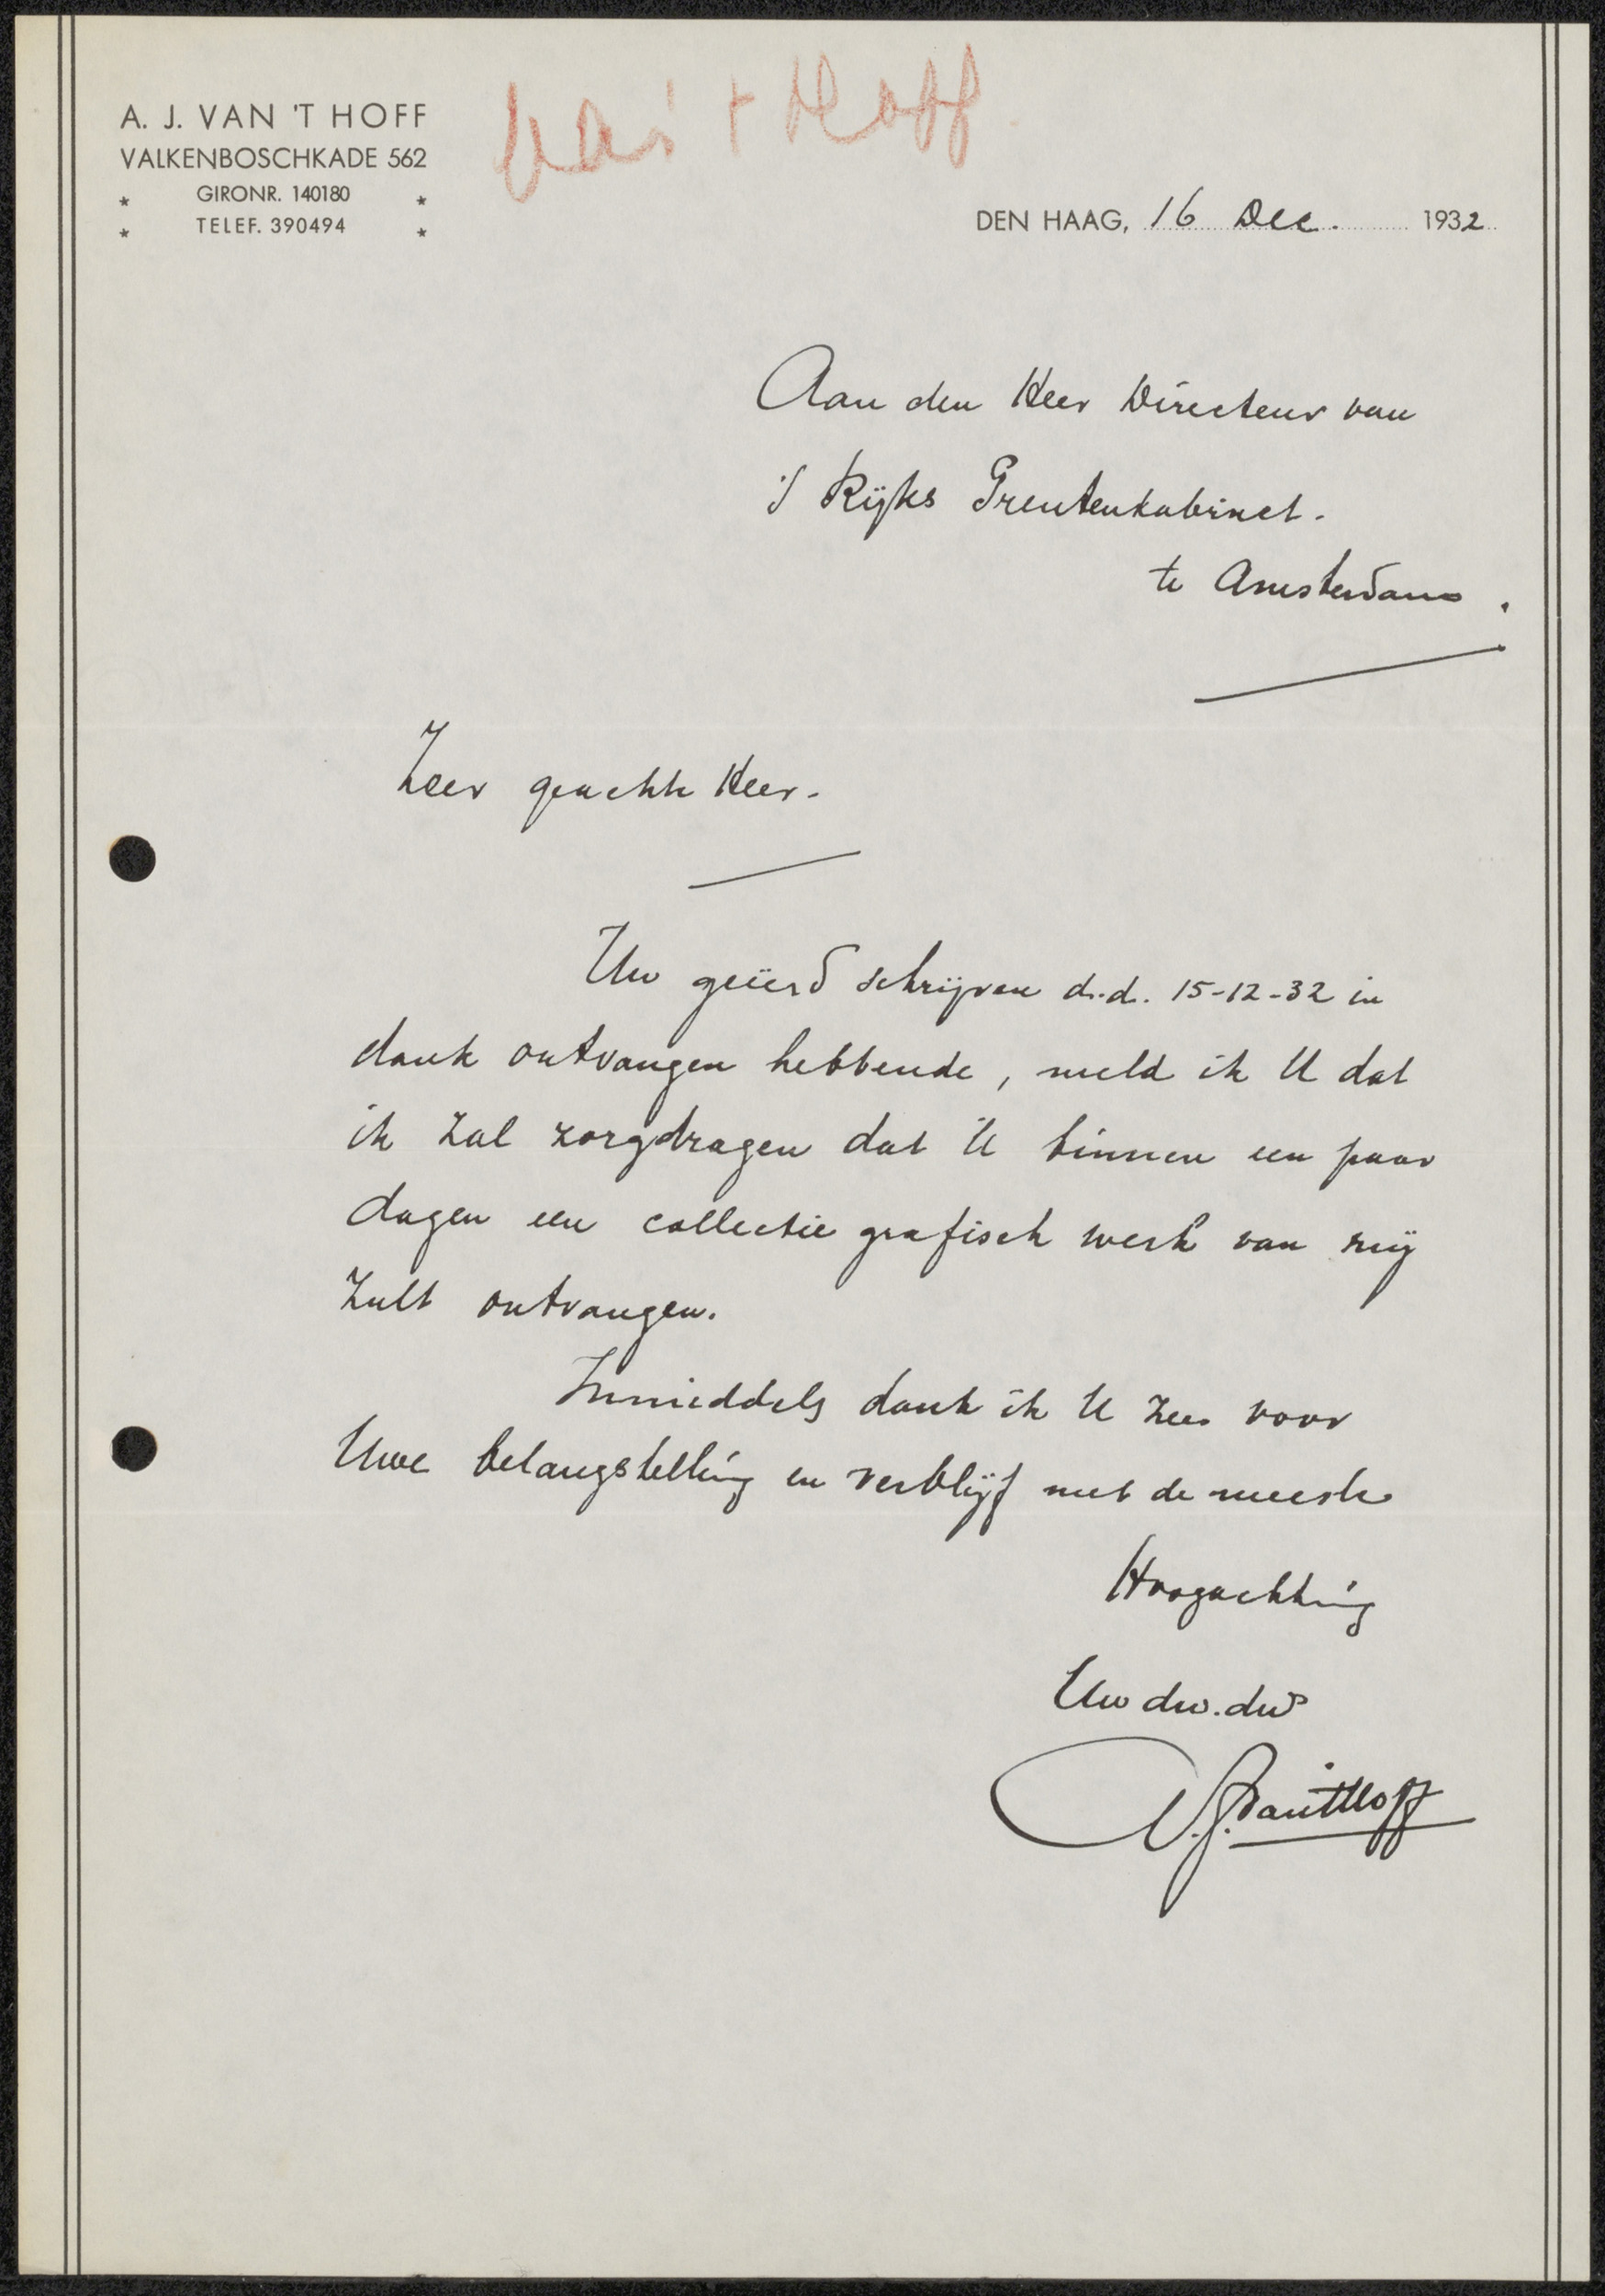 A. J. VAN 'T HOFF
VALKENBOSCHKADE 562
* GIRONR. 140180 *
* TELEF. 390494 *
van 't Hoff
DEN HAAG, 16 Dec. 1932
Aan den Heer Directeur van
's Rijks Prentenkabinet.
te Amsterdam.
Zeer geachte Heer.
Uw geëerd schrijven d.d. 15-12-32 in
dank ontvangen hebbende, meld ik U dat
ik zal zorgdragen dat U binnen een paar
dagen een collectie grafisch werk van mij
zult ontvangen.
Inmiddels dank ik U zeer voor
Uwe belangstelling en verblijf met de meeste
Hoogachting
Uw dw. dnr
A.J. van 't Hoff